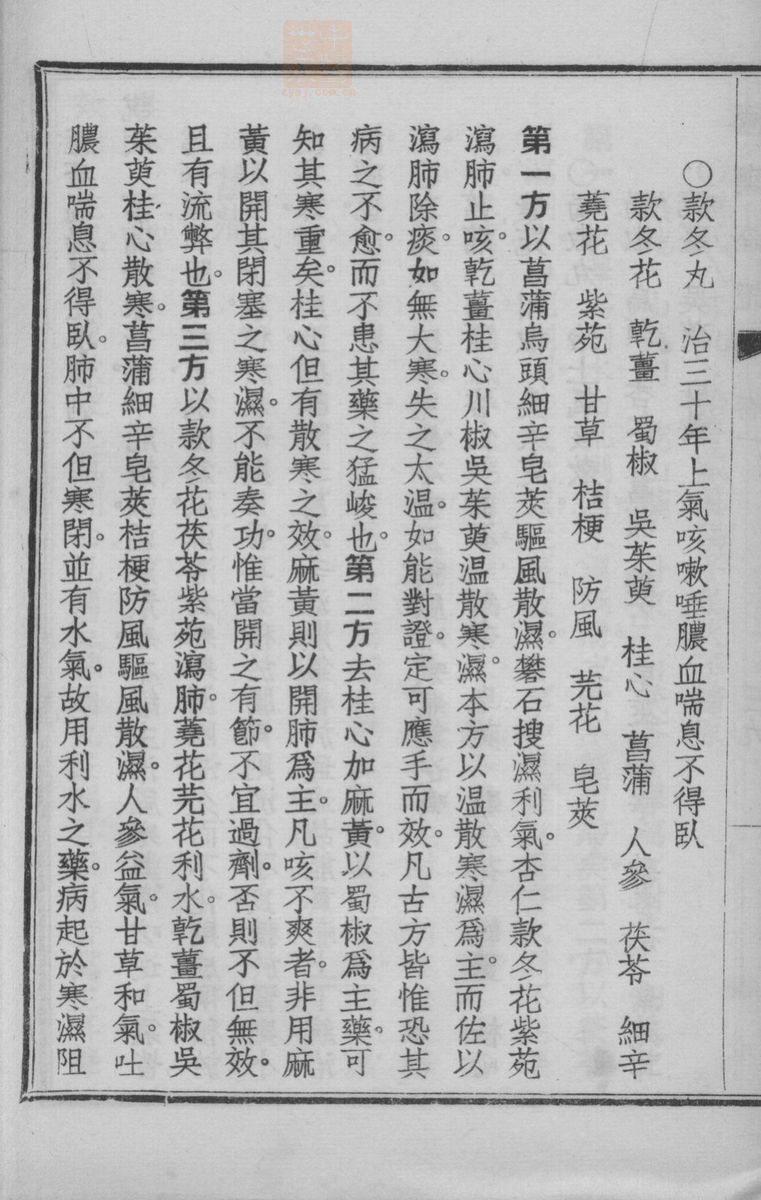 ○款冬丸　治三十年上氣咳嗽唾膿血喘息不得臥
款冬花　乾薑　蜀椒　吳茱萸　桂心　菖蒲　人參　茯苓　細辛
蕘花　紫苑　甘草　桔梗　防風　芫花　皂莢
第一方以菖蒲烏頭細辛皂莢驅風散濕。礬石搜濕利氣。杏仁款冬花紫苑
瀉肺止咳。乾薑桂心川椒吳茱萸温散寒濕。本方以温散寒濕爲主。而佐以
瀉肺除痰。如無大寒。失之太温。如能對證。定可應手而效。凡古方皆惟恐其
病之不愈。而不患其藥之猛峻也。第二方去桂心加麻黃。以蜀椒爲主藥。可
知其寒重矣。桂心但有散寒之效。麻黃則以開肺爲主。凡咳不爽者。非用麻
黃以開其閉塞之寒濕。不能奏功。惟當開之有節。不宜過劑。否則不但無效。
且有流弊也。第三方以款冬花茯苓紫苑瀉肺。蕘花芫花利水。乾薑蜀椒吳
茱萸桂心散寒。菖蒲細辛皂莢桔梗防風驅風散濕。人參益氣。甘草和氣。吐
膿血喘息不得臥。肺中不但寒閉。並有水氣。故用利水之藥。病起於寒濕阻
zysj.com.cn